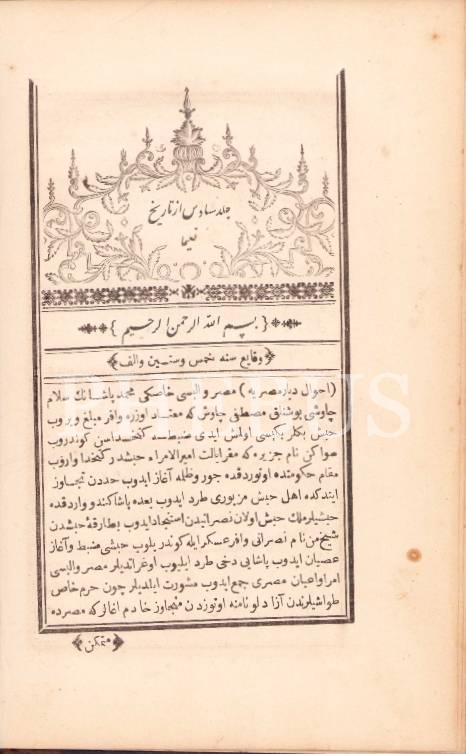 جلد سادس از تاريخ
نعيما
بسم الله الرحمن الرحيم
وقايع سنه خمس وستين والف
(احوال ديار مصريه) مصر واليسى خاصكى محمد پاشانك سلام
چاوشى بوشناق مصطفى چاوش كه معتاد اوزره وافر مبلغ ويروب
حبش بكلربكيسى اولمش ايدى ضبطـه كتخداسن كوندروب
سواكن نام جزيره كه مقر ايالت امير الامراء حبشدر كتخدا واروب
مقام حكومتده اوتوردقده جور وظلمه آغاز ايدوب حددن تجاوز
ايتدكده اهل حبش مزبورى طرد ايدوب بعده پاشا كندو واردقده
حبشيلر ملك حبش اولان نصرانيدن استنجاد ايدوب بطارقهٔ حبشدن
شيخ من نام نصرانى وافر عسكر ايله كوندريلوب حبشى ضبط وآغاز
عصيان ايدوب پاشايى دخى طرد ايليوب اوغراتديلر مصر واليسى
امرا واعيان مصرى جمع ايدوب مشورت ايلديلر چون حرم خاص
طواشيلرندن آزادلو نامنه اوتوزدن متجاوز خادم اغالر كه مصرده
متمكن
BLEDUS